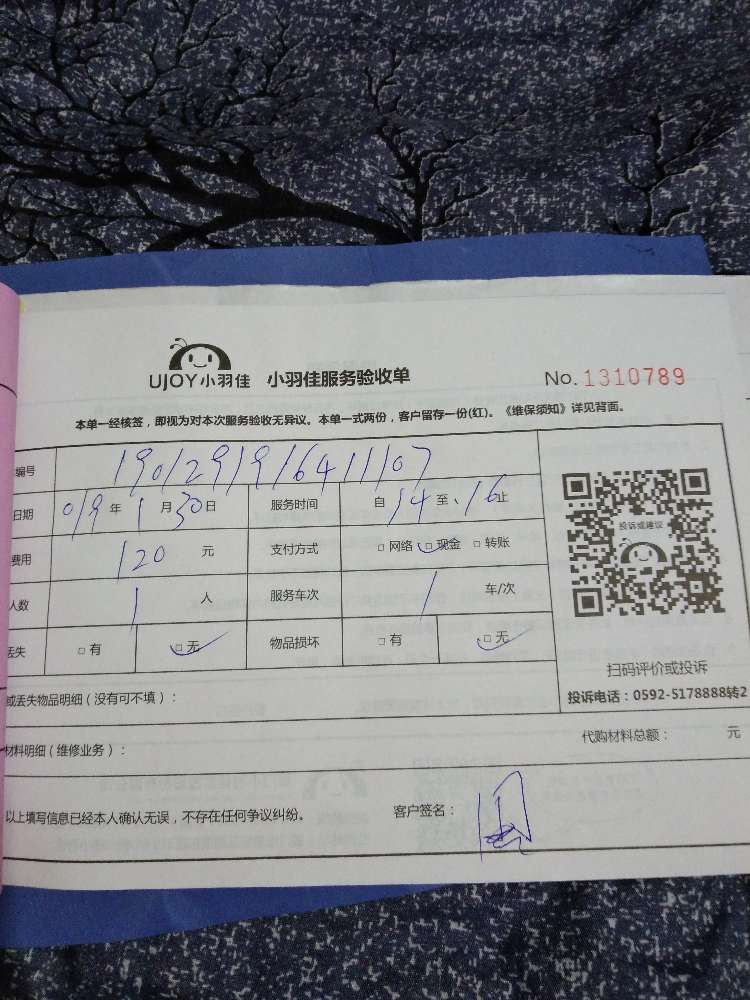 UJOY小羽佳 小羽佳服务验收单 No. 1310789
本单一经核签，即视为对本次服务验收无异议。本单一式两份，客户留存一份(红)。《维保须知》详见背面。
编号 190129191641107
日期 019 年 1 月 30 日 服务时间 自 14 至 16 止
费用 120 元 支付方式 □ 网络 □ 现金 □ 转账
人数 1 人 服务车次 1 车/次
丢失 □ 有 □ 无 物品损坏 □ 有 □ 无
投诉或建议
扫码评价或投诉
投诉电话：0592-5178888转2
或丢失物品明细（没有可不填）：
材料明细（维修业务）： 代购材料总额： 元
以上填写信息已经本人确认无误，不存在任何争议纠纷。 客户签名：